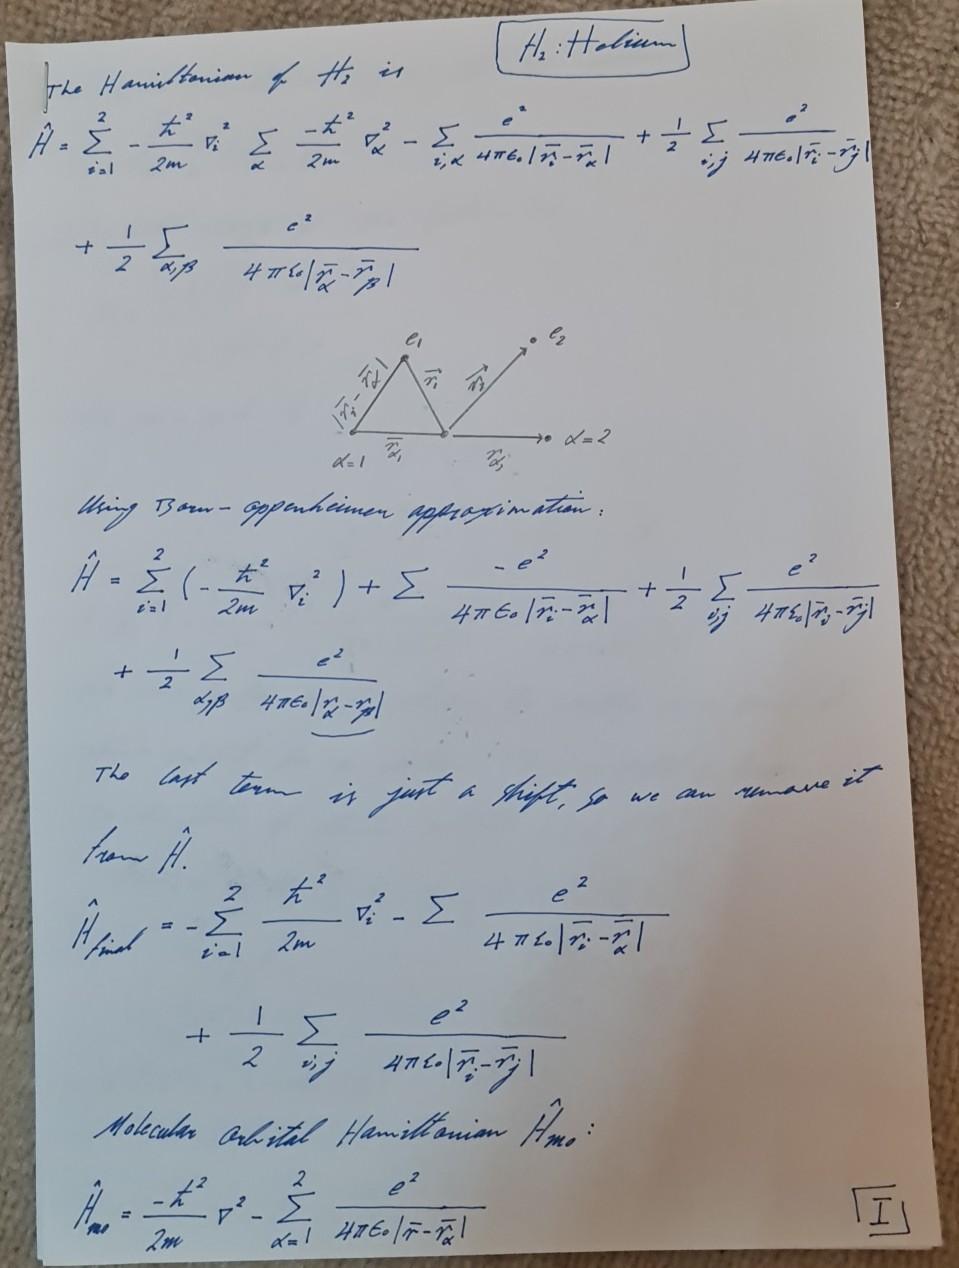 H₂ : Helium
The Hamiltonian of H₂ is
Ĥ = Σ_{i=1}^{2} -ħ²/2m ∇_i² Σ_α -ħ²/2m ∇_α² - Σ_{i,α} e²/(4πε₀|r̄_i - r̄_α|) + 1/2 Σ_{i,j} e²/(4πε₀|r̄_i - r̄_j|)
+ 1/2 Σ_{α,β} e²/(4πε₀|r̄_α - r̄_β|)
e₁ e₂
|r̄_i - r̄_α| r⃗_i
α=1 r̄_{α₁} α=2
Using Born-oppenheimer approximation:
Ĥ = Σ_{i=1}^{2} (-ħ²/2m ∇_i²) + Σ -e²/(4πε₀|r̄_i - r̄_α|) + 1/2 Σ_{i,j} e²/(4πε₀|r̄_i - r̄_j|)
+ 1/2 Σ_{α,β} e²/(4πε₀|r_α - r_β|)
The last term is just a shift, so we can remove it
from Ĥ.
Ĥ_final = -Σ_{i=1}^{2} ħ²/2m ∇_i² - Σ e²/(4πε₀|r̄_i - r̄_α|)
+ 1/2 Σ_{i,j} e²/(4πε₀|r̄_i - r̄_j|)
Molecular orbital Hamiltonian Ĥ_mo:
Ĥ_mo = -ħ²/2m ∇² - Σ_{α=1}^{2} e²/(4πε₀|r̄ - r̄_α|)
I